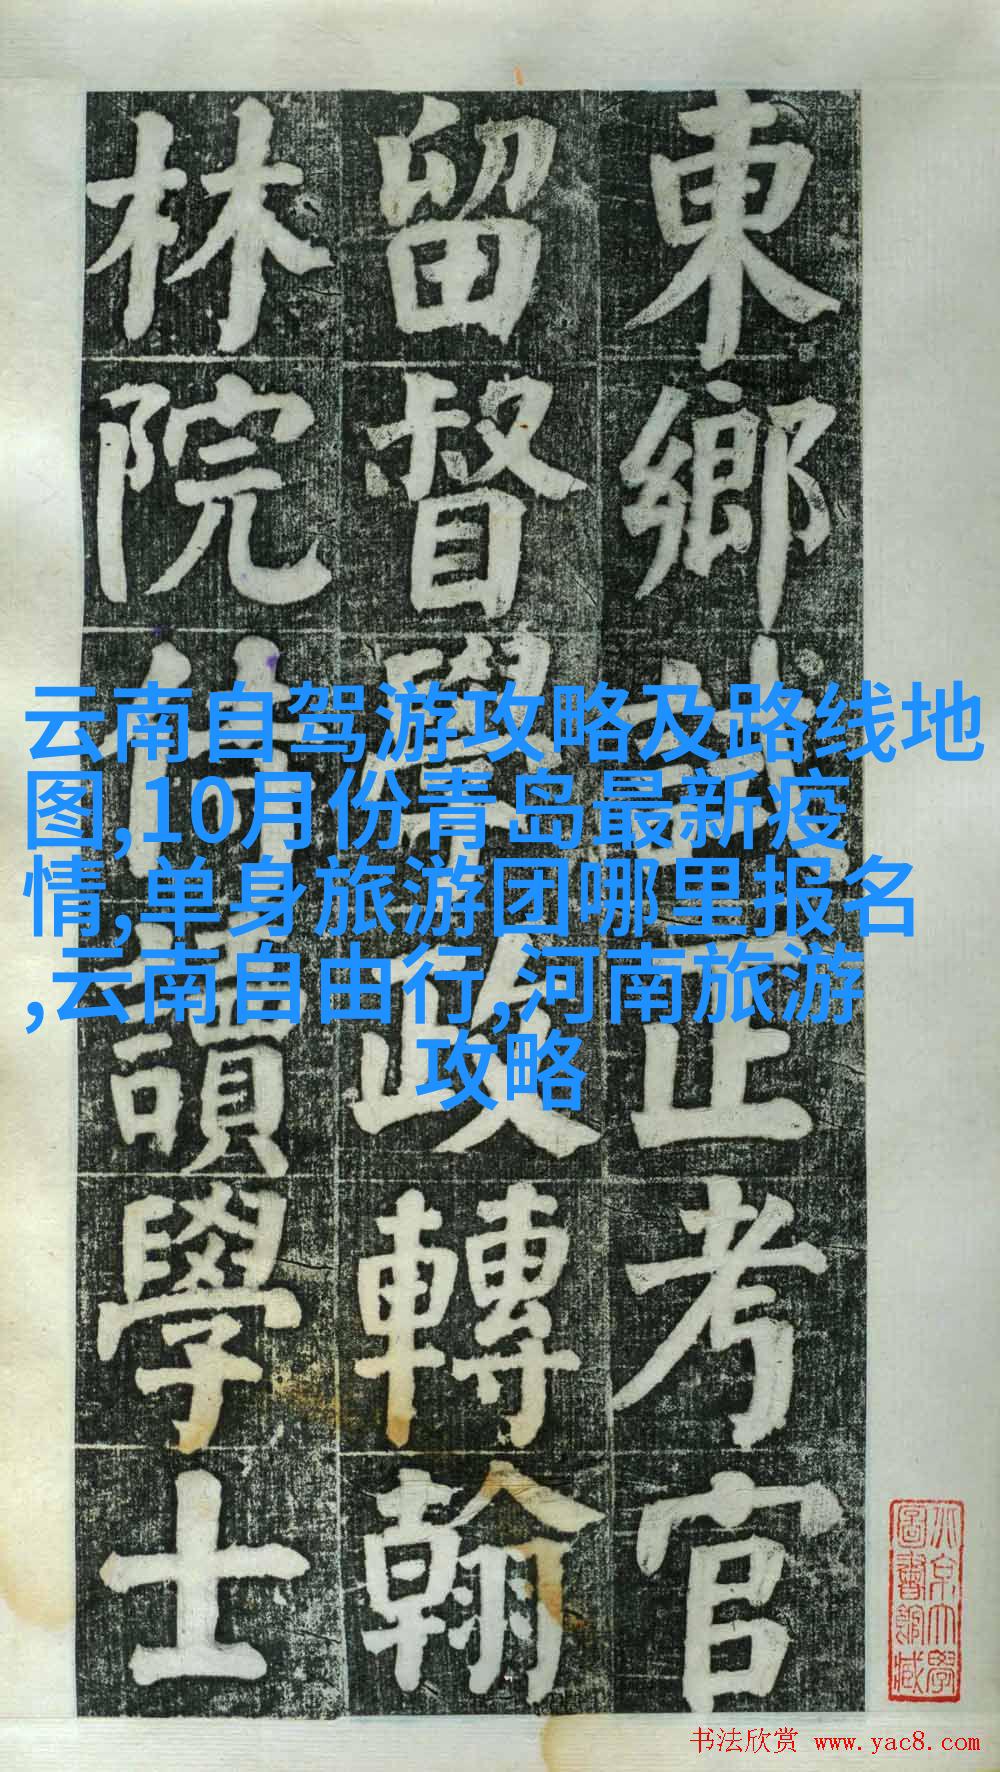 東鄉試正考官
留督學政轉翰
林院侍讀學士
云南自驾游攻略及路线地
图,10月份青岛最新疫
情,单身旅游团哪里报名
,云南自由行,河南旅游
攻略
北京大學
圖書館藏
书法欣赏 www.yac8.com